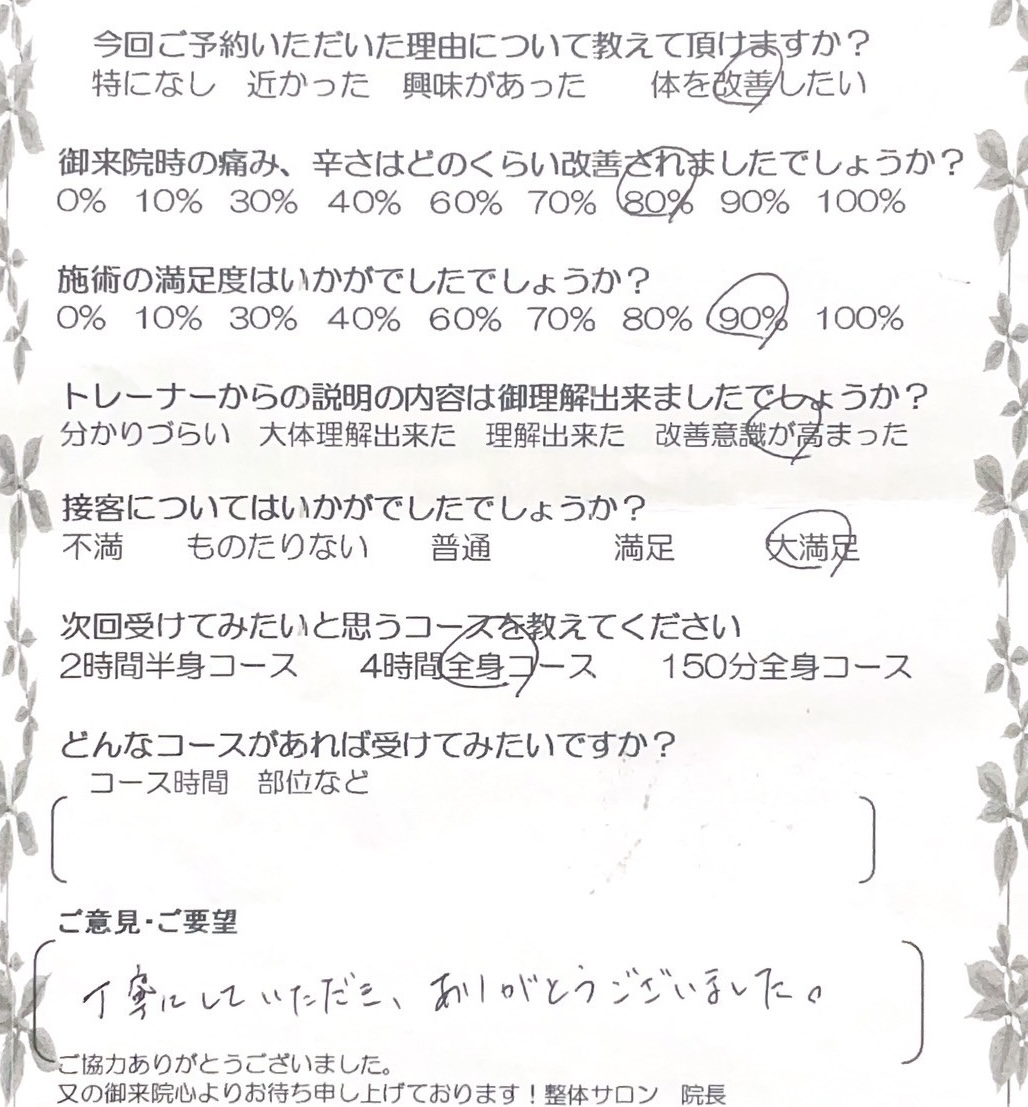 今回ご予約いただいた理由について教えて頂けますか？
特になし 近かった 興味があった 体を改善したい
御来院時の痛み、辛さはどのくらい改善されましたでしょうか？
0% 10% 30% 40% 60% 70% 80% 90% 100%
施術の満足度はいかがでしたでしょうか？
0% 10% 30% 40% 60% 70% 80% 90% 100%
トレーナーからの説明の内容は御理解出来ましたでしょうか？
分かりづらい 大体理解出来た 理解出来た 改善意識が高まった
接客についてはいかがでしたでしょうか？
不満 ものたりない 普通 満足 大満足
次回受けてみたいと思うコースを教えてください
2時間半身コース 4時間全身コース 150分全身コース
どんなコースがあれば受けてみたいですか？
コース時間 部位など
ご意見・ご要望
丁寧にしていただき、ありがとうございました。
ご協力ありがとうございました。
又の御来院心よりお待ち申し上げております！整体サロン 院長